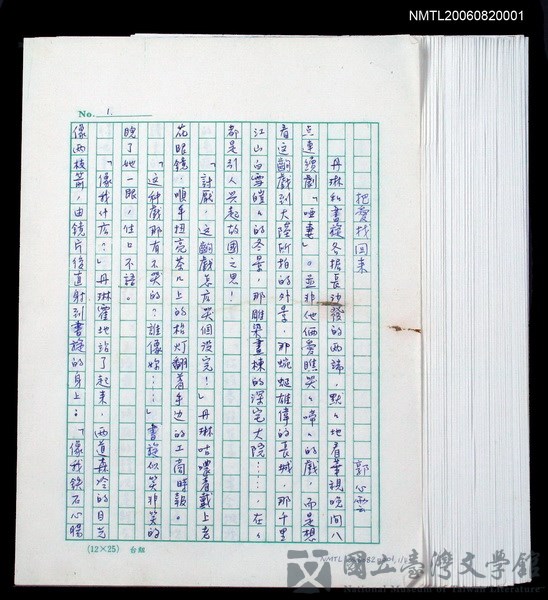 NMTL20060820001
No. 1.
把愛找回來
郭心雲
丹琳和書旋各據長沙發的兩端,默々地看華視晚間八
點連續劇「啞妻」。並非他倆愛瞧哭々啼々的戲,而是想
看這齣戲到大陸所拍的外景,那蜿蜒雄偉的長城,那千里
江山白雪皚々的冬景,那雕梁畫棟的深宅大院……,在々
都是引人興起故國之思!
「討厭,這齣戲怎麼哭個沒完!」丹琳咕噥着戴上老
花眼鏡,順手扭亮茶几上的枱灯翻着手边的工商時報。
「这种戲那有不哭的?誰像妳……」書旋似笑非笑的
睨了她一眼,住口不語。
「像我什麼?」丹琳霍地站了起来,兩道森冷的目光
像兩枝箭,由鏡片後直射到書旋的身上:「像我鐵石心腸
(12×25)
國立臺灣文學館
National Museum of Taiwan Literature